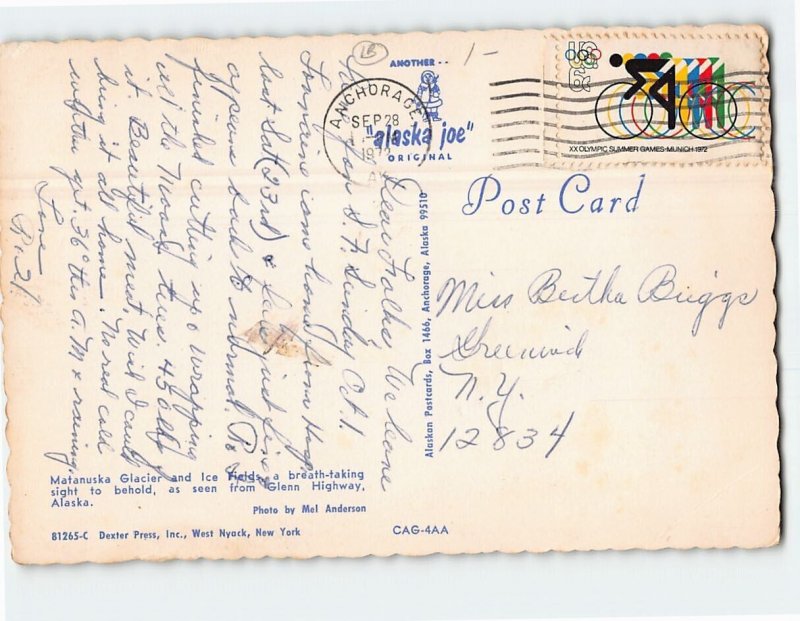 LB
1-
ANOTHER - -
"alaska joe"
ORIGINAL
ANCHORAGE
SEP 28
1972
US 8c
XX OLYMPIC SUMMER GAMES·MUNICH 1972
Post Card
Dear Folks We leave
for S.F. Sunday Oct. 1
Lorraine came home from Hosp
last Sat (23rd) & feels just fine
appears back to normal. R. &
finished cutting up & wrapping
all the Moose time. 450 lb of
it. Beautiful meat, Wish I could
bring it all home. No real cold
weather yet. 36° this A.M. & raining.
Love
Miss Bertha Briggs
Greenwich
N.Y.
12834
Alaskan Postcards, Box 1466, Anchorage, Alaska 99510
Matanuska Glacier and Ice Fields, a breath-taking
sight to behold, as seen from Glenn Highway,
Alaska.
Photo by Mel Anderson
81265-C Dexter Press, Inc., West Nyack, New York
CAG-4AA